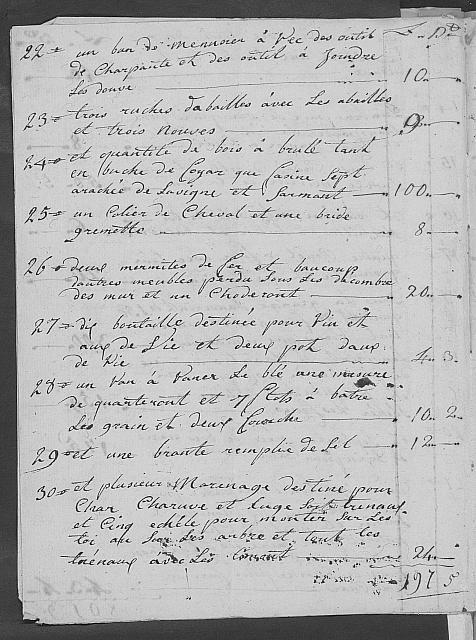 22 un ban de menusier a vec des outils
de Charpante et des outil à Joindre
Les douve 10
23 trois ruches dabailles avec Les abailles
et trois nouves 9
24 et quantité de bois à brulé tant
en buche de foyar que sapin
arachée de La vigne et Sarmant 100
25 un Colier de Cheval et une bride
gremette 8
26 deux mermites de fer et baucoup
dautres meubles perdu sous Les décombre
des mur et un Choderont 20
27 dix boutaille destinée pour Vin et
aux de Vie et deux pot daux
de Vie 4 3
28 un Van à Vaner Le blé une mesure
de quarteront et 7 flots à batre
Les grain et deux 10 2
29 et une brante remplie de Lit 12
30 et plusieur Marenage destiné pour
Char Charuve et Luge Sept trenaux
et Cinq echéle pour monter sur Les
toi au sur Les arbre et tout les
trenaux avec Les 24
197 5